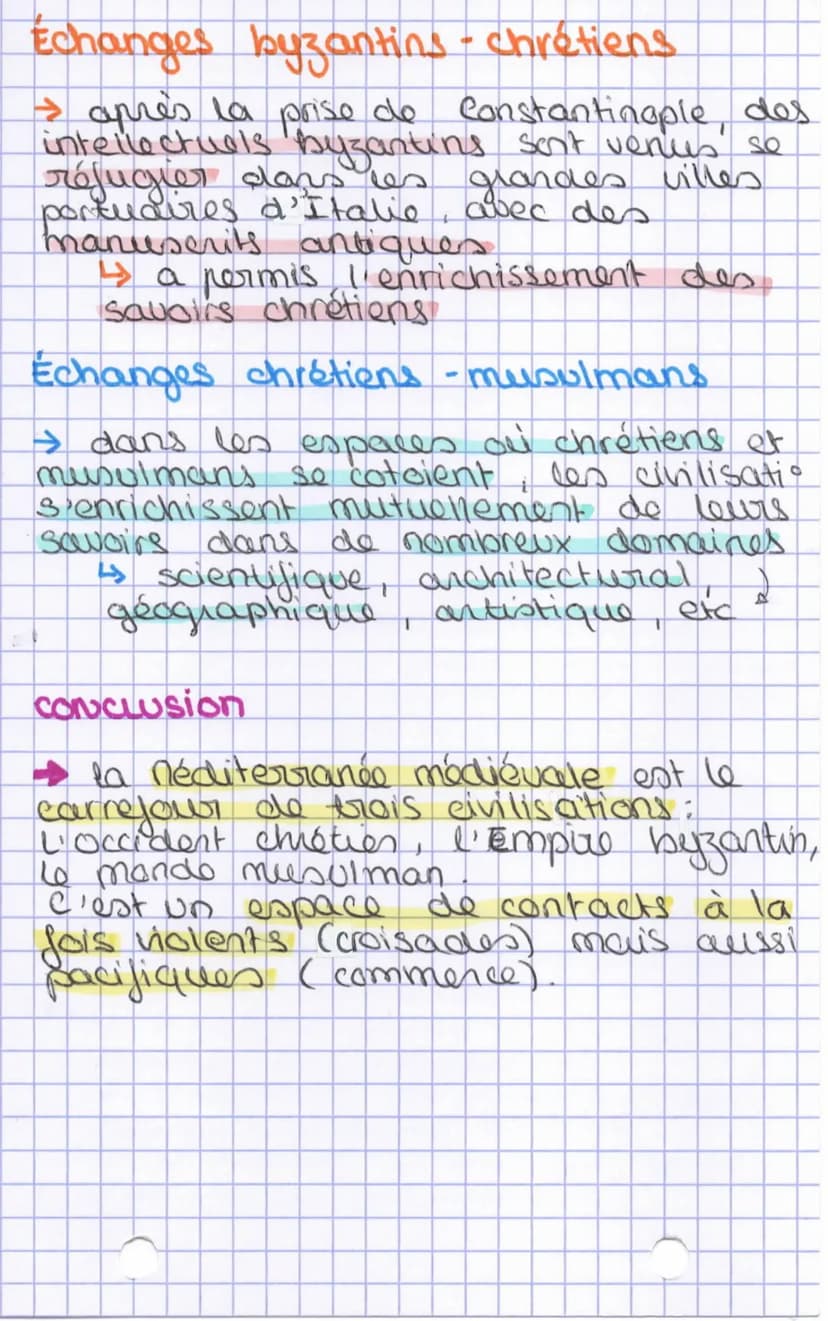 Échanges byzantins - chrétiens
→ après la prise de Constantinople, des
intellectuels byzantins sont venus se
réfugier dans les grandes villes
portuaires d'Italie, avec des
manuscrits antiques
↳ a permis l'enrichissement des
savoirs chrétiens
Échanges chrétiens - musulmans
→ dans les espaces où chrétiens et
musulmans se cotoient, les civilisatio
s'enrichissent mutuellement de leurs
savoirs dans de nombreux domaines
↳ scientifique, architectural,
géographique, artistique, etc
conclusion
→ la Méditerranée médiévale est le
carrefour de trois civilisations :
L'occident chrétien, l'Empire byzantin,
le monde musulman.
C'est un espace de contacts à la
fois violents (croisades) mais aussi
pacifiques (commerce).